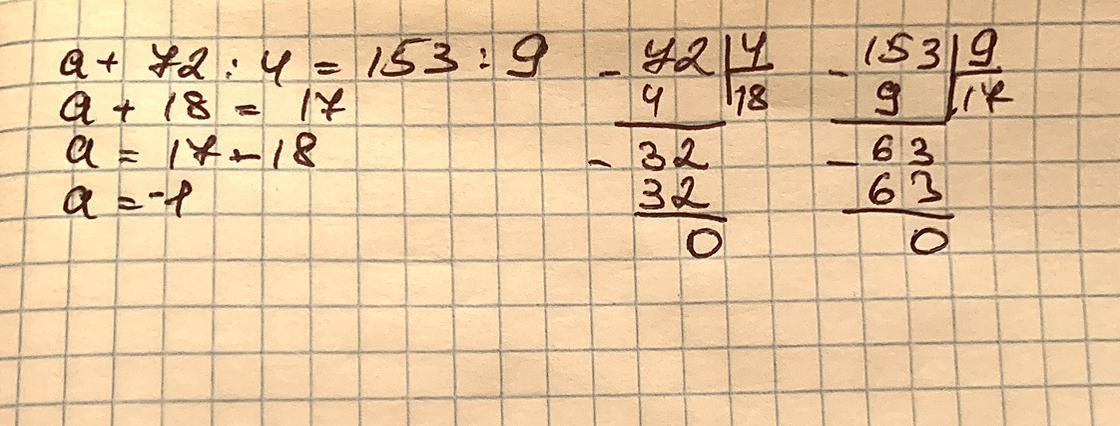 a + 72 : 4 = 153 : 9
a + 18 = 17
a = 17 - 18
a = -1
- 72 | 4
4 | 18
- 32
32
0
- 153 | 9
9 | 17
- 63
63
0